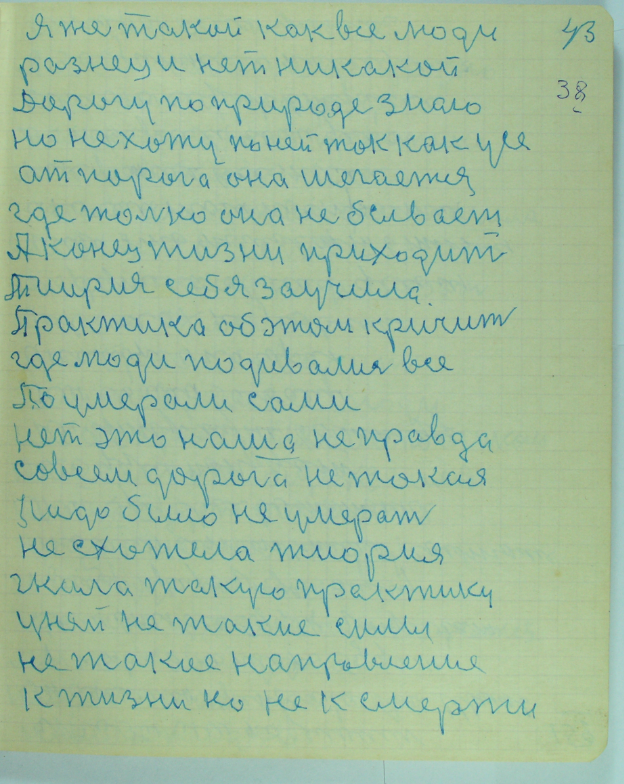 Я же такой как все люди 43
разнеци нет никакой 38
Дорогу по природе знаю
но не хожу по ней ток как усе
от порога она шегается
где толко она не бывает
А конец жизни приходит
Тиирия себя заучила
Практика об этом кричит
где люди подивалия все
Поумерали сами
нет это наша неправда
совсем дорога не токая
надо было не умерат
не схотела тиория
гнила такую практику
уняй не такие силы
не такое направление
К жизни но не к смерти